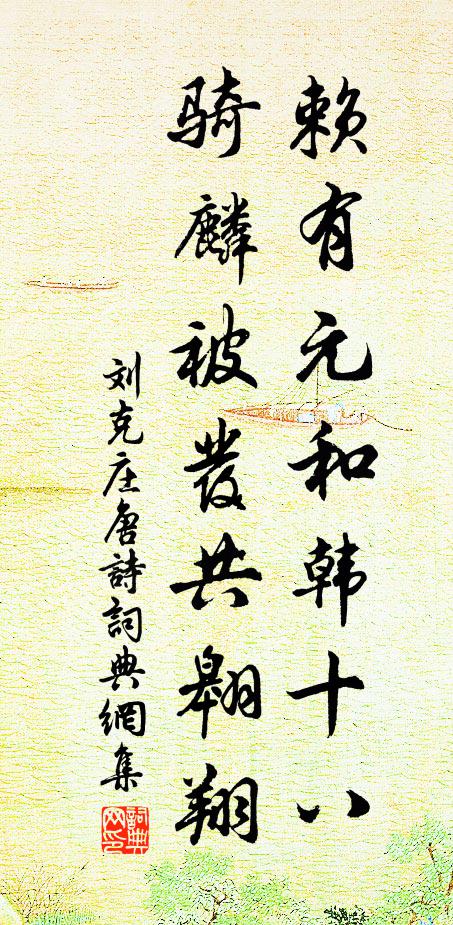 赖有元和韩十八
骑麟被发共翱翔
刘克庄唐詩詞典網集
詞典网印